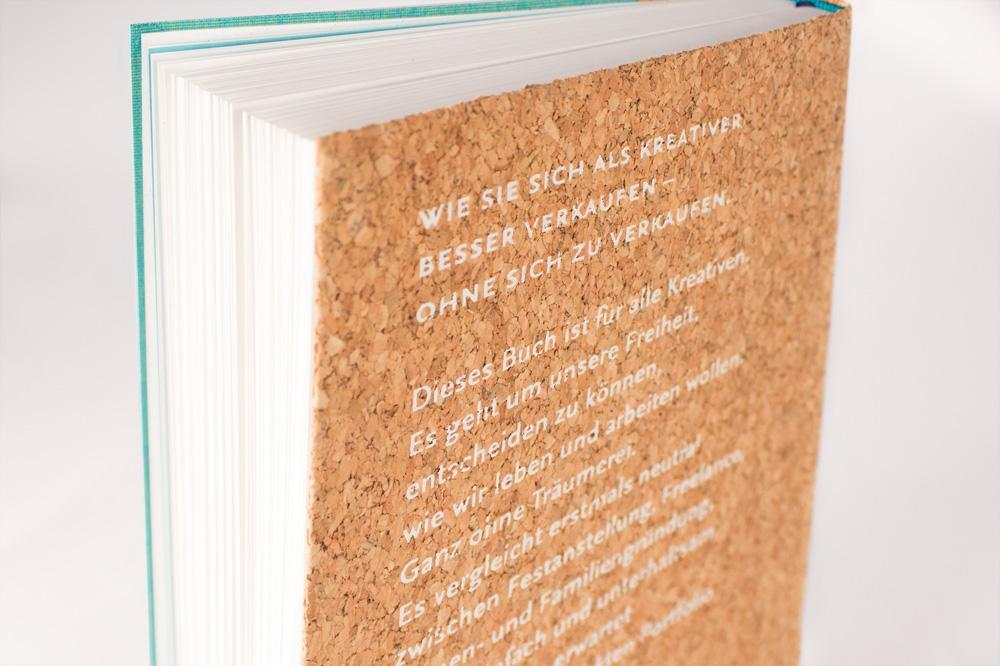 WIE SIE SICH ALS KREATIVER
BESSER VERKAUFEN –
OHNE SICH ZU VERKAUFEN.
Dieses Buch ist für alle Kreativen.
Es geht um unsere Freiheit,
entscheiden zu können,
wie wir leben und arbeiten wollen.
Ganz ohne Träumerei.
Es vergleicht erstmals neutral
zwischen Festanstellung, Freelance,
und Familiengründung.
und unterhaltsam.
erwartet
Portfolio